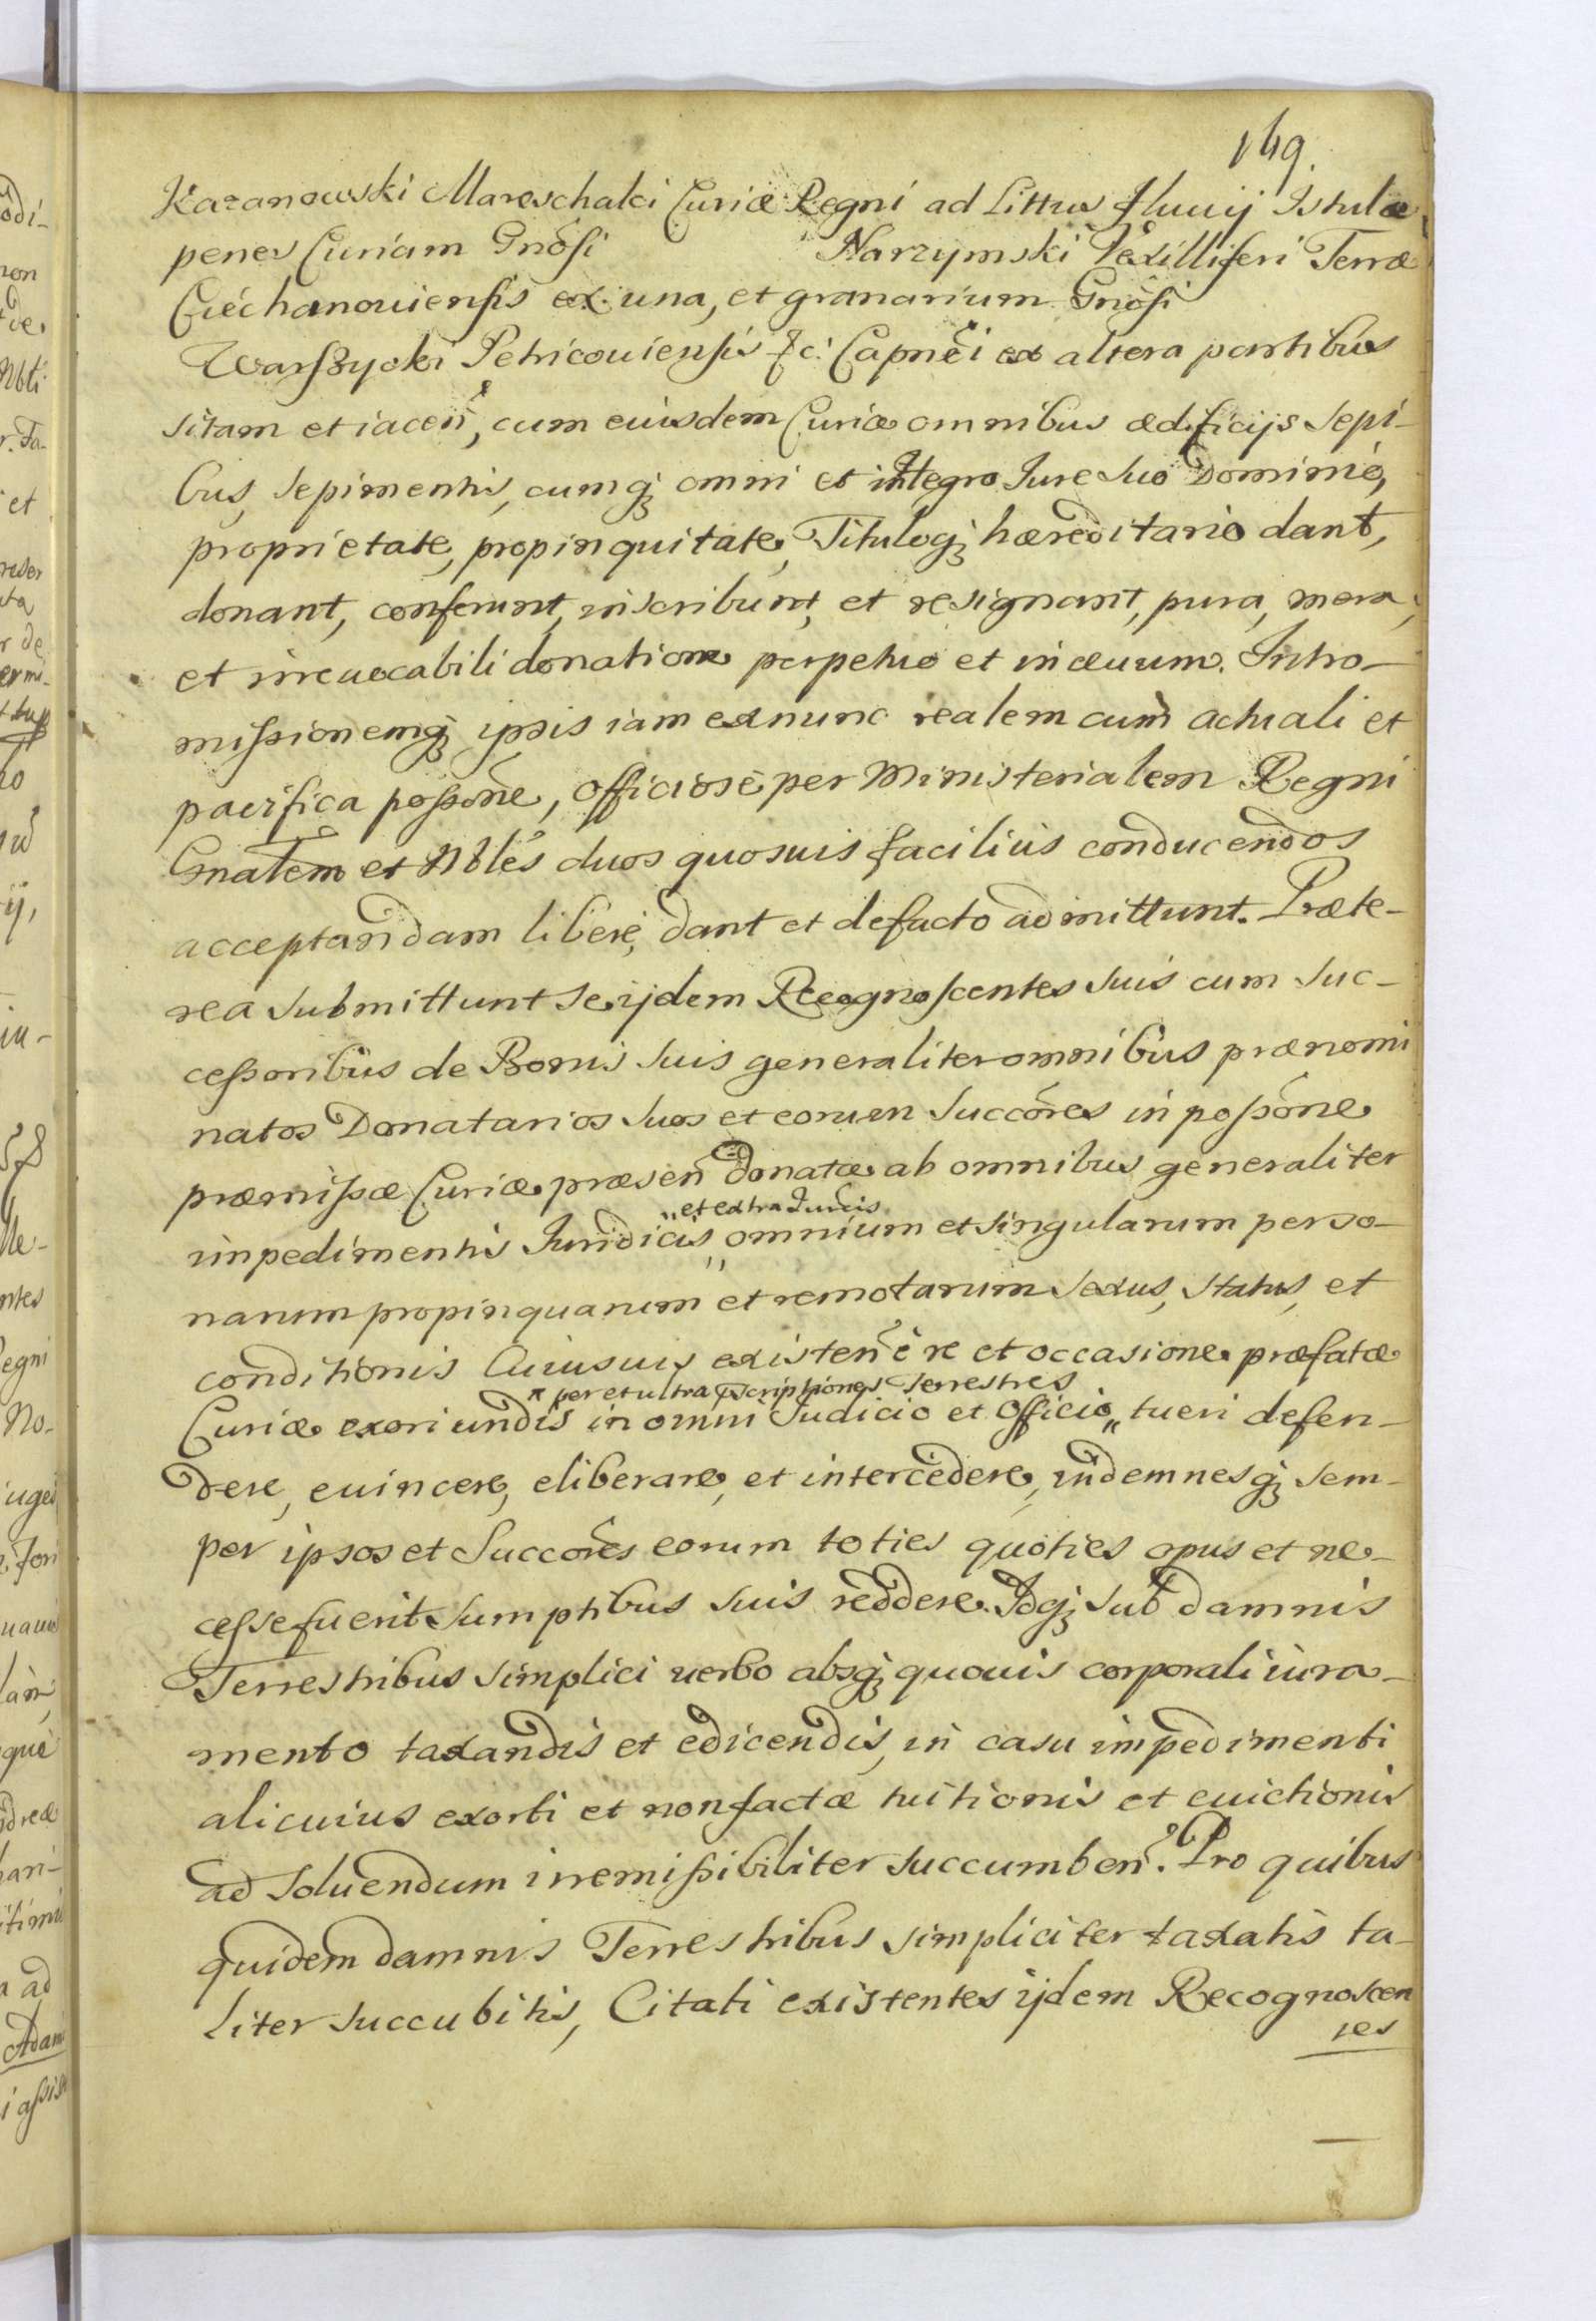 149.
Kazanowski Mareschalci Curiæ Regni ad Littus fluuij Istulæ
penes Curiam Gnosi Narzymski Vexilliferi Terræ
Ciechanouiensis ex una, et granarium Gnosi
Warszycki Petricouiensis &c: Capnei ex altera partibus
sitam et iacen, cum eiusdem Curiæ omnibus ædificijs sepi-
bus, sepimentis, cumq; omni et integro Jure suo Dominio,
proprietate, propinquitate, Tituloq; hæreditario dant,
donant, conferunt, inscribunt, et resignant, pura, mera,
et irreuocabili donatione perpetuo et in æuum. Intro-
missionemq; ipsis iam ex nunc realem cum actuali et
pacifica possone, officiose per Ministerialem Regni
Gnalem et Nbles duos quosuis facilius conducendos
acceptandam libere, dant et defacto admittunt. Præte-
rea submittunt se ijdem Recognoscentes suis cum suc-
cessoribus de Bonis suis generaliter omnibus prænomi
natos Donatarios suos et eorum Succores in possone
præmissæ Curiæ præsen donatæ ab omnibus generaliter
" et extra Juricis
impedimentis Juridicis " omnium et singularum perso-
narum propinquarum et remotarum sexus, status, et
conditionis cuiusuis existen è re et occasione præfatæ
" per et ultra præscriptiones terrestres
Curiæ exoriundis in omni Judicio et Officio " tueri defen-
dere, euincere, eliberare, et intercedere, indemnesq; sem-
per ipsos et Succores eorum toties quoties opus et ne-
cesse fuerit sumptibus suis reddere. Idq; sub damnis
Terrestribus simplici uerbo absq; quouis corporali iura-
mento taxandis et edicendis, in casu impedimenti
alicuius exorti et non factæ tuitionis et euictionis
ad soluendum irremissibiliter succumben. Pro quibus
quidem damnis Terrestribus simpliciter taxatis ta-
liter succubitis, Citati existentes ijdem Recognoscen
tes